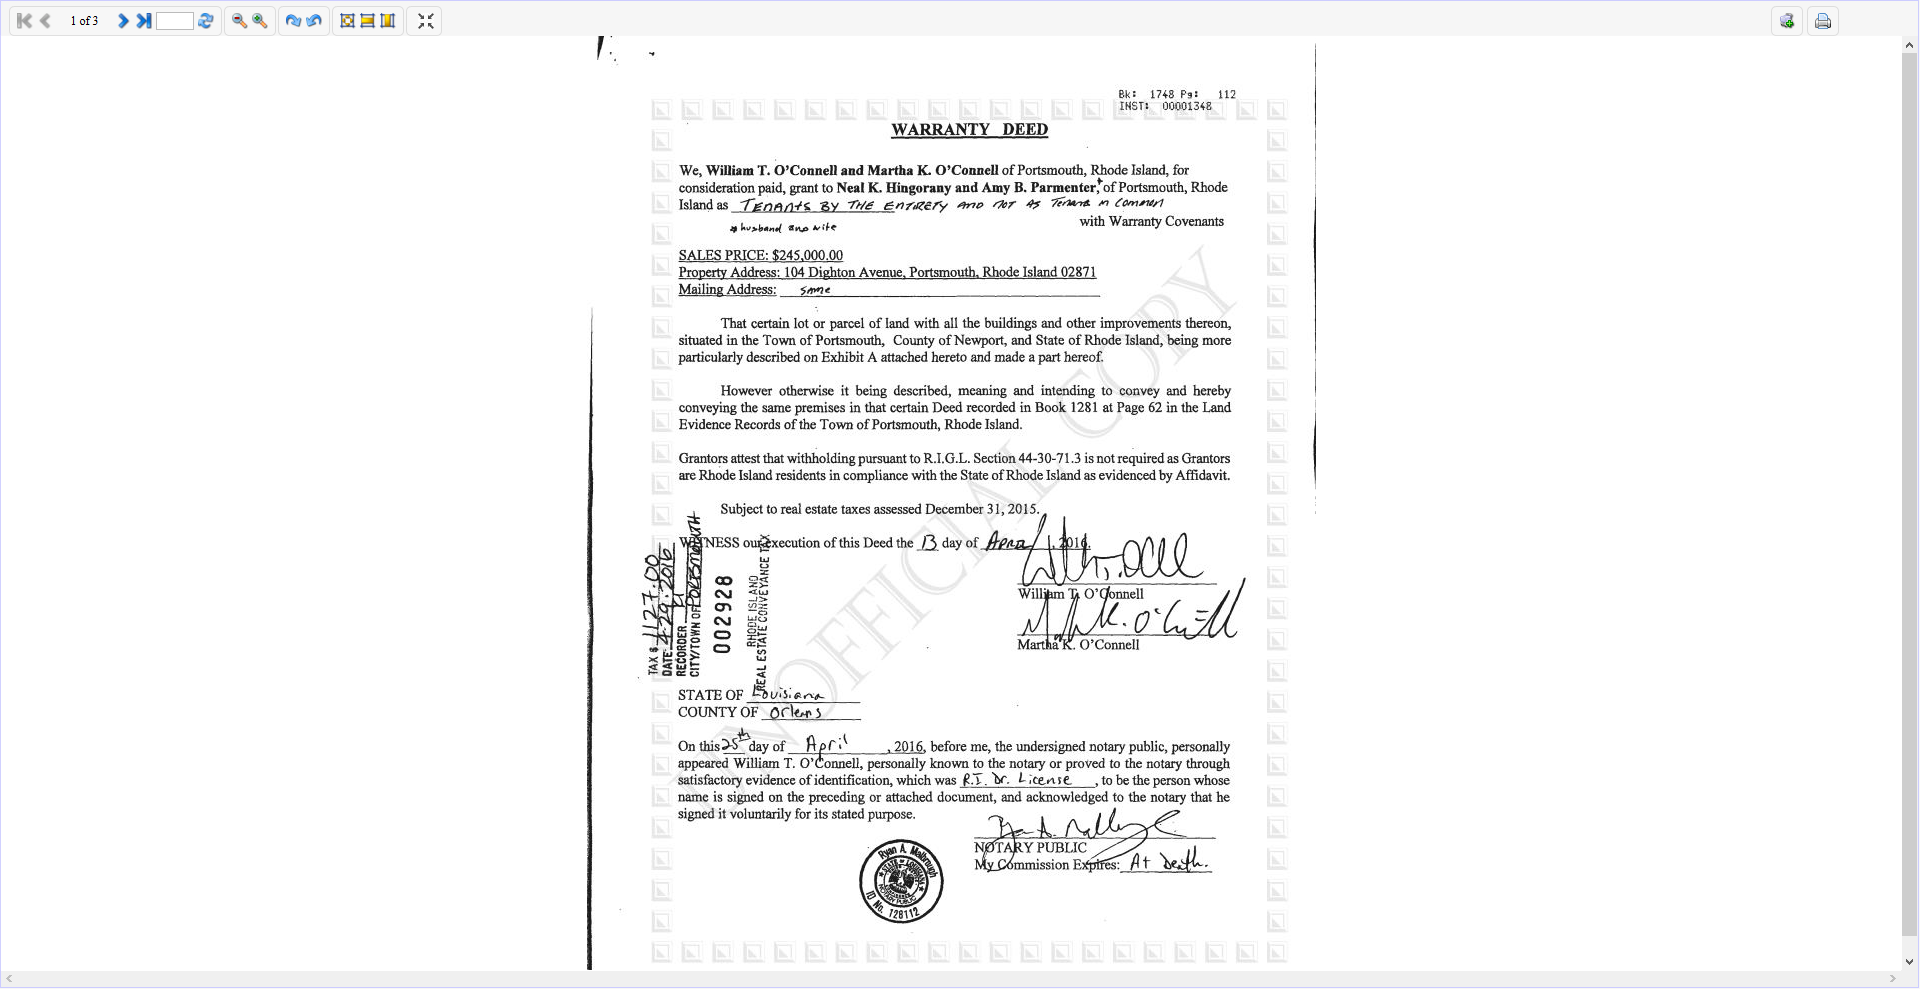 1 of 3
Bk: 1748 Pg: 112
INST: 00001348
WARRANTY DEED
We, William T. O'Connell and Martha K. O'Connell of Portsmouth, Rhode Island, for
consideration paid, grant to Neal K. Hingorany and Amy B. Parmenter,* of Portsmouth, Rhode
Island as TENANTS BY THE ENTIRETY AND NOT AS Tenants in Common
with Warranty Covenants
* husband and wife
SALES PRICE: $245,000.00
Property Address: 104 Dighton Avenue, Portsmouth, Rhode Island 02871
Mailing Address: same
That certain lot or parcel of land with all the buildings and other improvements thereon,
situated in the Town of Portsmouth, County of Newport, and State of Rhode Island, being more
particularly described on Exhibit A attached hereto and made a part hereof.
However otherwise it being described, meaning and intending to convey and hereby
conveying the same premises in that certain Deed recorded in Book 1281 at Page 62 in the Land
Evidence Records of the Town of Portsmouth, Rhode Island.
Grantors attest that withholding pursuant to R.I.G.L. Section 44-30-71.3 is not required as Grantors
are Rhode Island residents in compliance with the State of Rhode Island as evidenced by Affidavit.
Subject to real estate taxes assessed December 31, 2015.
WITNESS our execution of this Deed the 13 day of April, 2016.
William T. O'Connell
Martha K. O'Connell
TAX $ 1127.00
DATE 4-29-2016
RECORDER
CITY/TOWN OF PORTSMOUTH
002928
RHODE ISLAND
REAL ESTATE CONVEYANCE TAX
STATE OF Louisiana
COUNTY OF Orleans
On this 25th day of April, 2016, before me, the undersigned notary public, personally
appeared William T. O'Connell, personally known to the notary or proved to the notary through
satisfactory evidence of identification, which was R.I. Dr. License, to be the person whose
name is signed on the preceding or attached document, and acknowledged to the notary that he
signed it voluntarily for its stated purpose.
NOTARY PUBLIC
My Commission Expires: At Death.
Ryan A. Malbrough
STATE OF LOUISIANA
NOTARY PUBLIC
ID No. 128112
UNOFFICIAL COPY